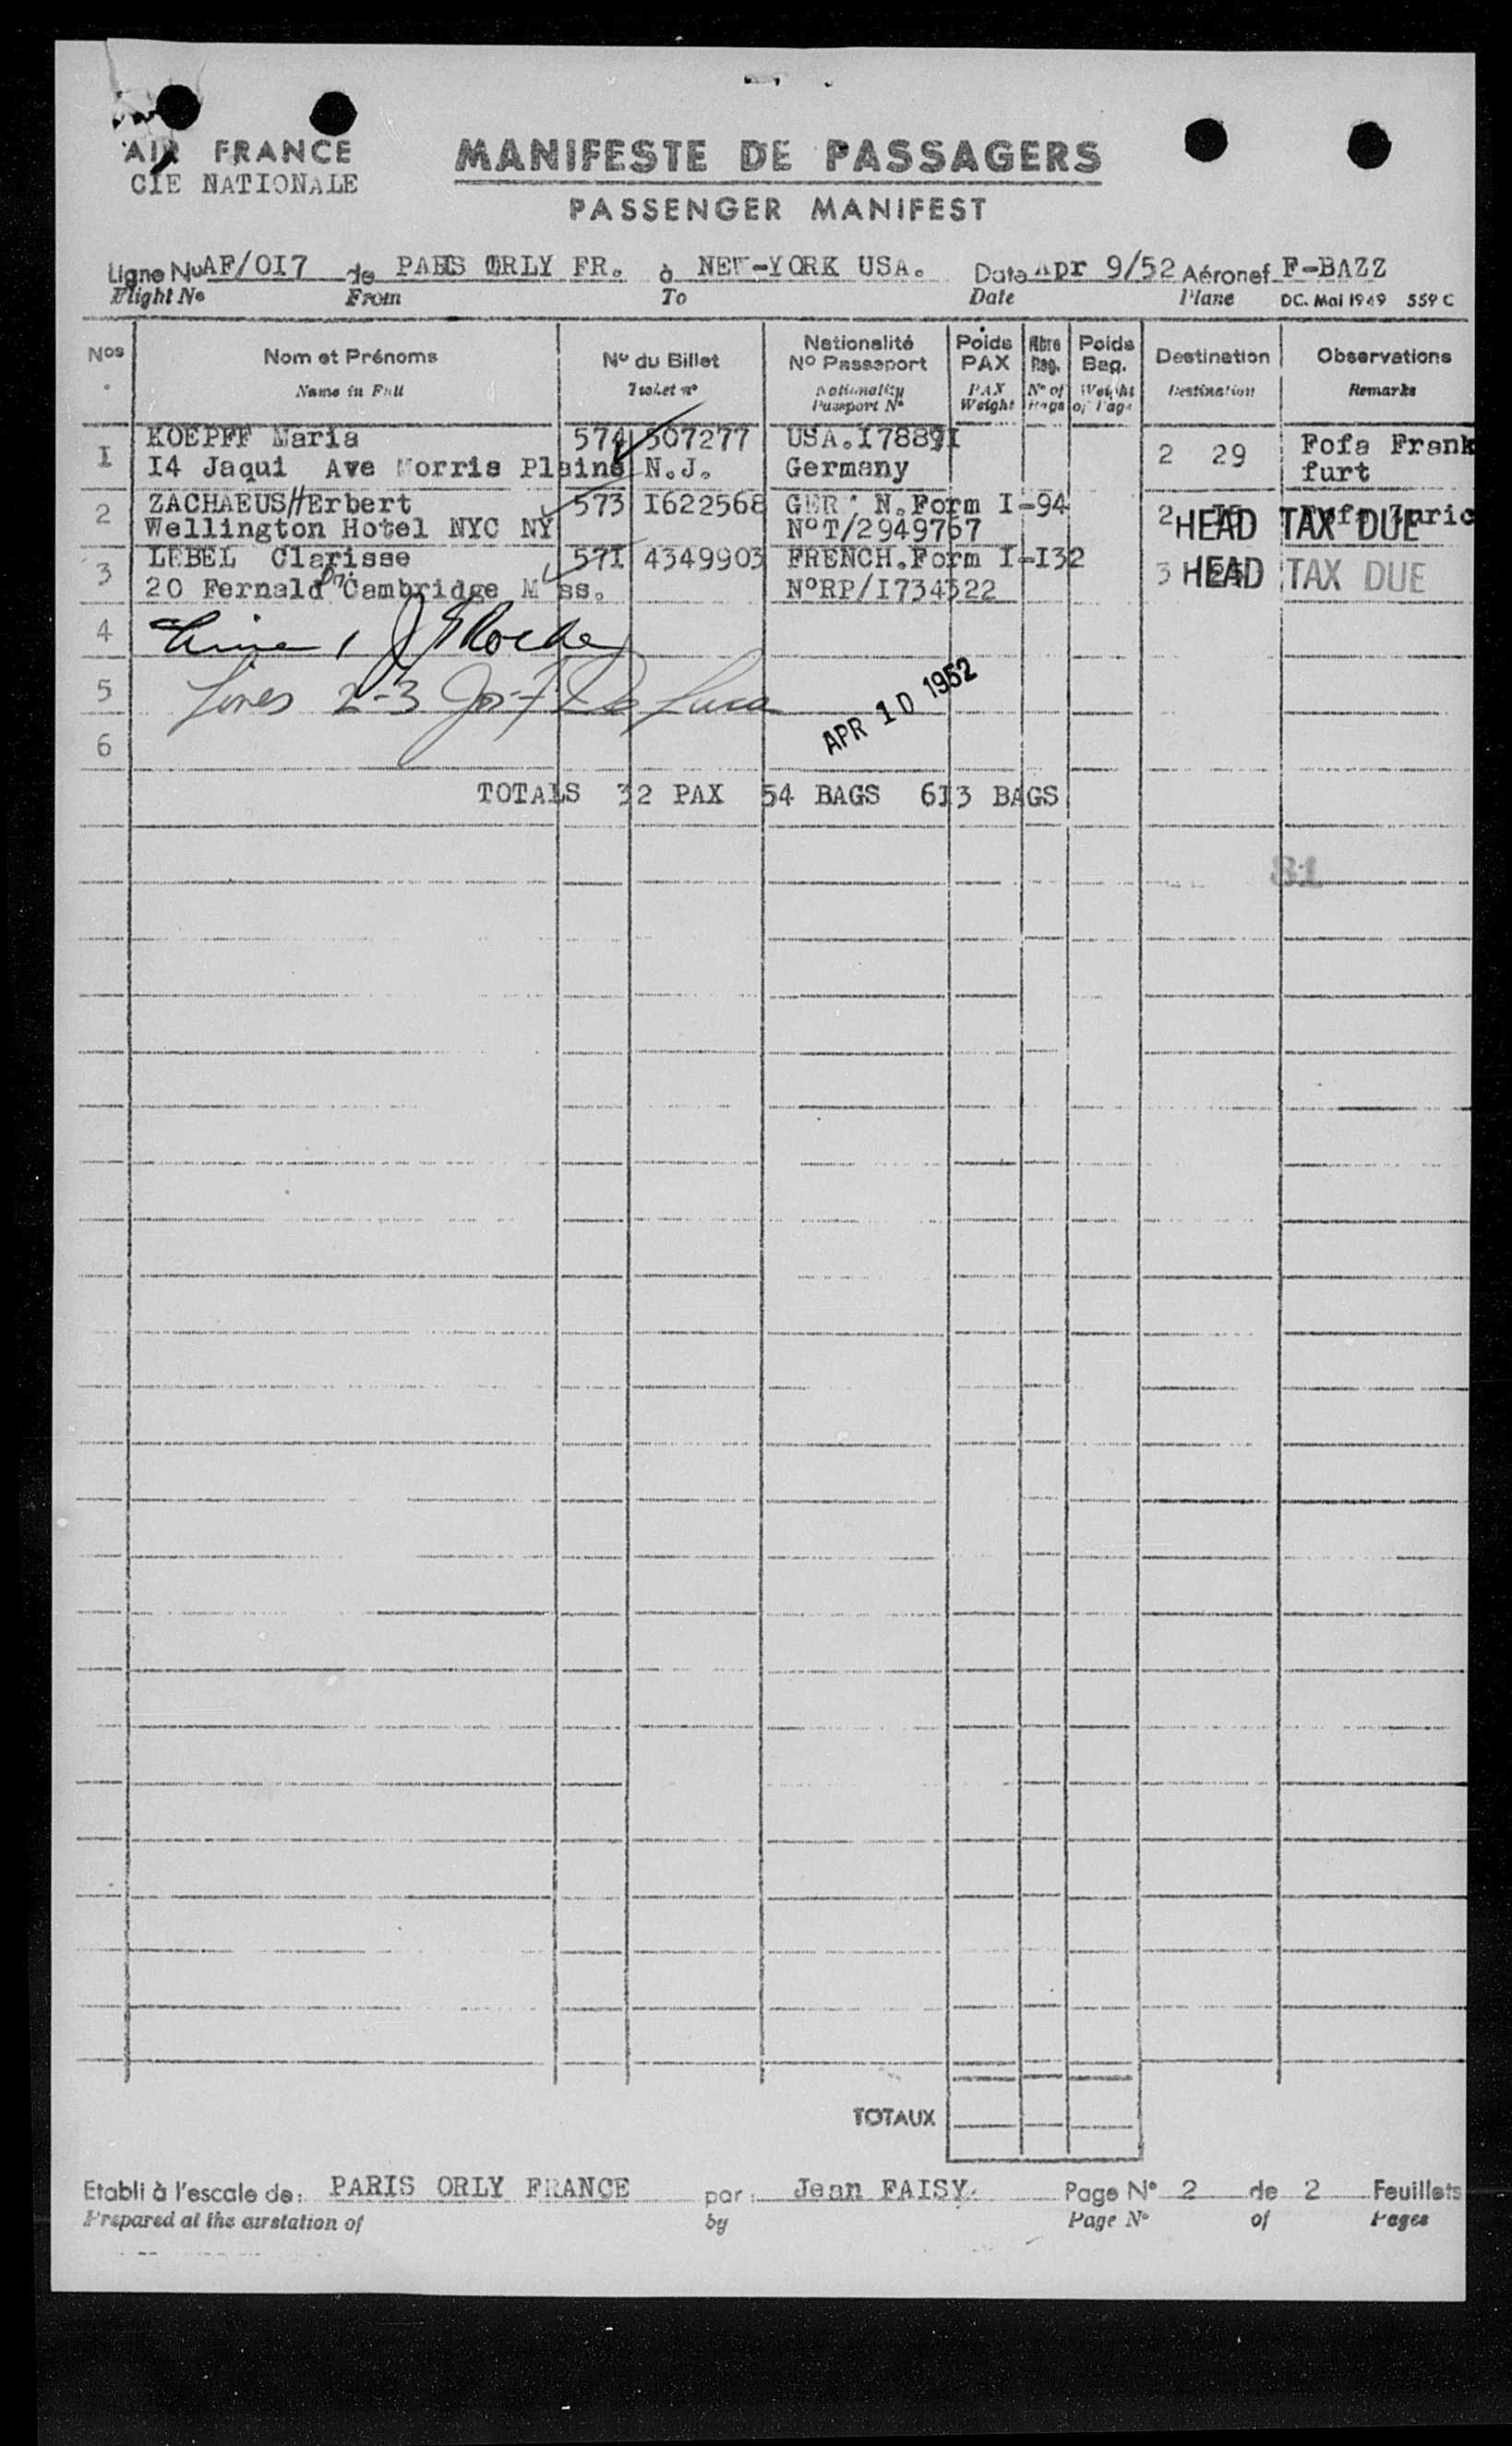 AIR FRANCE
CIE NATIONALE
MANIFESTE DE PASSAGERS
PASSENGER MANIFEST
Ligne No AF/OI7 de PARIS ORLY FR. à NEW-YORK USA. Date Apr 9/52 Aéronef F-BAZZ
Flight No From To Date Plane DC. Mai 1949 559 C
Nos Nom et Prénoms No du Billet Nationalité No Passeport Poids PAX Nbre Bag. Poids Bag. Destination Observations
Name in Full Ticket no Nationality Passport No PAX Weight No of Bags Weight of Bags Destination Remarks
I KOEPFF Maria 574 507277 USA.I7889I 2 29 Fofa Frank
I4 Jaqui Ave Morris Plains N.J. Germany furt
2 ZACHAEUS HErbert 573 I622568 GER N.Form I-94 2
Wellington Hotel NYC NY NoT/2949767 HEAD TAX DUE
3 LEBEL Clarisse 57I 4349903 FRENCH.Form I-I32 3 HEAD TAX DUE
20 Fernald Dr. Cambridge Mass. NoRP/I734322
4 Line 1
5 Lines 2-3 Jos. F. De Luca
APR 10 1952
6
TOTALS 32 PAX 54 BAGS 6I3 BAGS
81
TOTAUX
Etabli à l'escale de: PARIS ORLY FRANCE par: Jean FAISY. Page No 2 de 2 Feuillets
Prepared at the airstation of by Page No of Pages